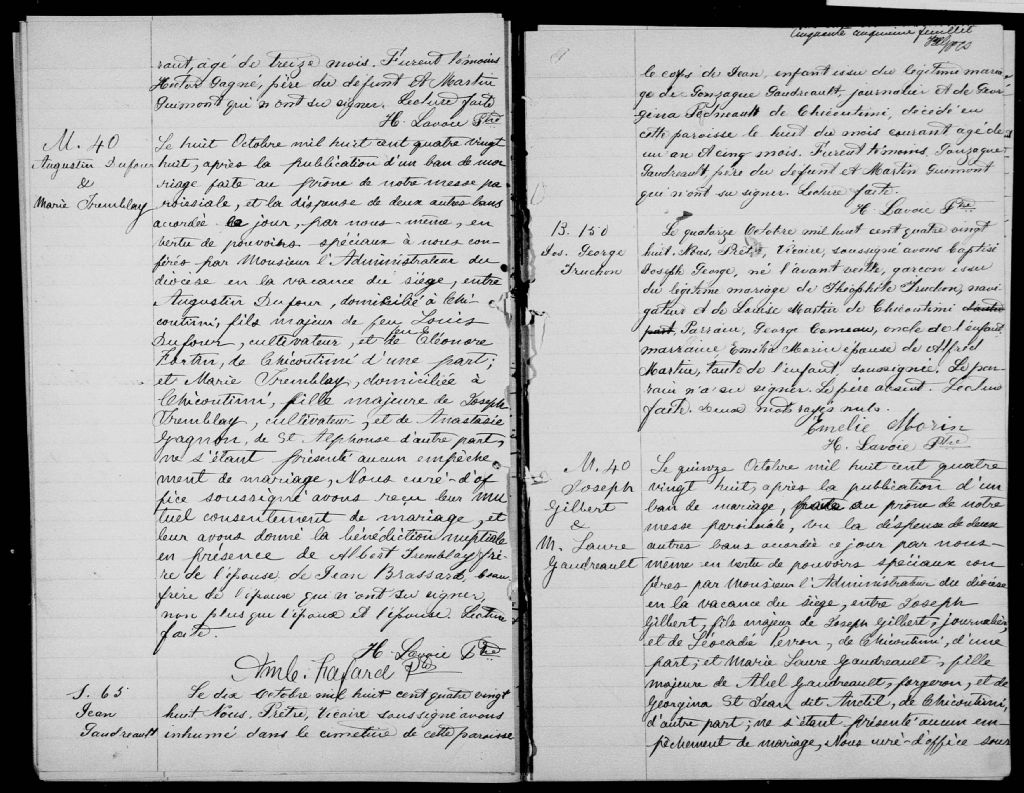 rant, agé de treize mois. Furent témoins
Hector Gagné, père du défunt et Martin
Guimont qui n'ont su signer. Lecture faite
H. Lavoie Ptre
M. 40
Augustin Dufour
&
Marie Tremblay
Le huit Octobre mil huit cent quatre vingt
huit, après la publication d'un ban de ma-
riage faite au prône de notre messe pa
roissiale, et la dispense de deux autres bans
accordée ce jour, par nous-même, en
vertu de pouvoirs spéciaux à nous con-
férés par Monsieur l'Administrateur du
diocèse en la vacance du siège, entre
Augustin Dufour, domicilié à Chi-
coutimi, fils majeur de feu Louis
Dufour, cultivateur, et de feu Eléonore
Fortin, de Chicoutimi d'une part;
et Marie Tremblay, domiciliée à
Chicoutimi, fille majeure de Joseph
Tremblay, cultivateur, et de Anastasie
Gagnon, de St Alphonse d'autre part,
ne s'étant présenté aucun empêche
ment de mariage, Nous curé-d'of
fice soussigné avons reçu leur mu
tuel consentement de mariage, et
leur avons donné la bénédiction nuptiale
en présence de Albert Tremblay, frè-
re de l'épouse de Jean Brassard, beau
frère de l'époux qui n'ont su signer,
non plus que l'époux et l'épouse. Lecture
faite.
H. Lavoie Ptre
Amb. Fafard Ptre
S. 65
Jean
Gaudreault
Le dix Octobre mil huit cent quatre vingt
huit Nous, Prêtre, Vicaire soussigné avons
inhumé dans le cimetière de cette paroisse
Cinquante cinquième feuillet
le corps de Jean, enfant issu du légitime maria-
ge de Gonzague Gaudreault, journalier et de Geor-
gina Pedneault de Chicoutimi, décédé en
cette paroisse le huit du mois courant agé de
un an et cinq mois. Furent témoins, Gonzague
Gaudreault, père du defunt et Martin Guimont
qui n'ont su signer. Lecture faite.
H. Lavoie Ptre
B. 150
Jos. George
Truchon
Le quatorze Octobre mil huit cent quatre vingt
huit. Nous, Prêtre, Vicaire, soussigné avons baptisé
Joseph George, né l'avant veille, garçon issu
du légitime mariage de Théophile Truchon, navi-
gateur et de Louise Martin de Chicoutimi d'autre
part, Parrain, George Comeau, oncle de l'enfant,
marraine, Emilie Morin épouse de Alfred
Martin, tante de l'enfant, soussignée. Le par-
rain n'a su signer. Le père absent. Lecture
faite. Deux mots rayés nuls.
Emelie Morin
H. Lavoie Ptre
M. 40
Joseph
Gilbert
&
M. Laure
Gaudreault
Le quinze Octobre mil huit cent quatre
vingt huit, après la publication d'un
ban de mariage, faite au prône de notre
messe paroissiale, vu la dispense de deux
autres bans accordée ce jour par nous-
même en vertu de pouvoirs spéciaux con
férés par Monsieur l'Administrateur du diocèse
en la vacance du siège, entre Joseph
Gilbert, fils majeur de Joseph Gilbert, journalier,
et de Léocadie Perron, de Chicoutimi, d'une
part; et Marie Laure Gaudreault, fille
majeure de Abel Gaudreault, forgeron, et de
Georgina St Jean dit Anctil, de Chicoutimi,
d'autre part; ne s'étant présenté aucun em-
pêchement de mariage, Nous curé-d'office sous